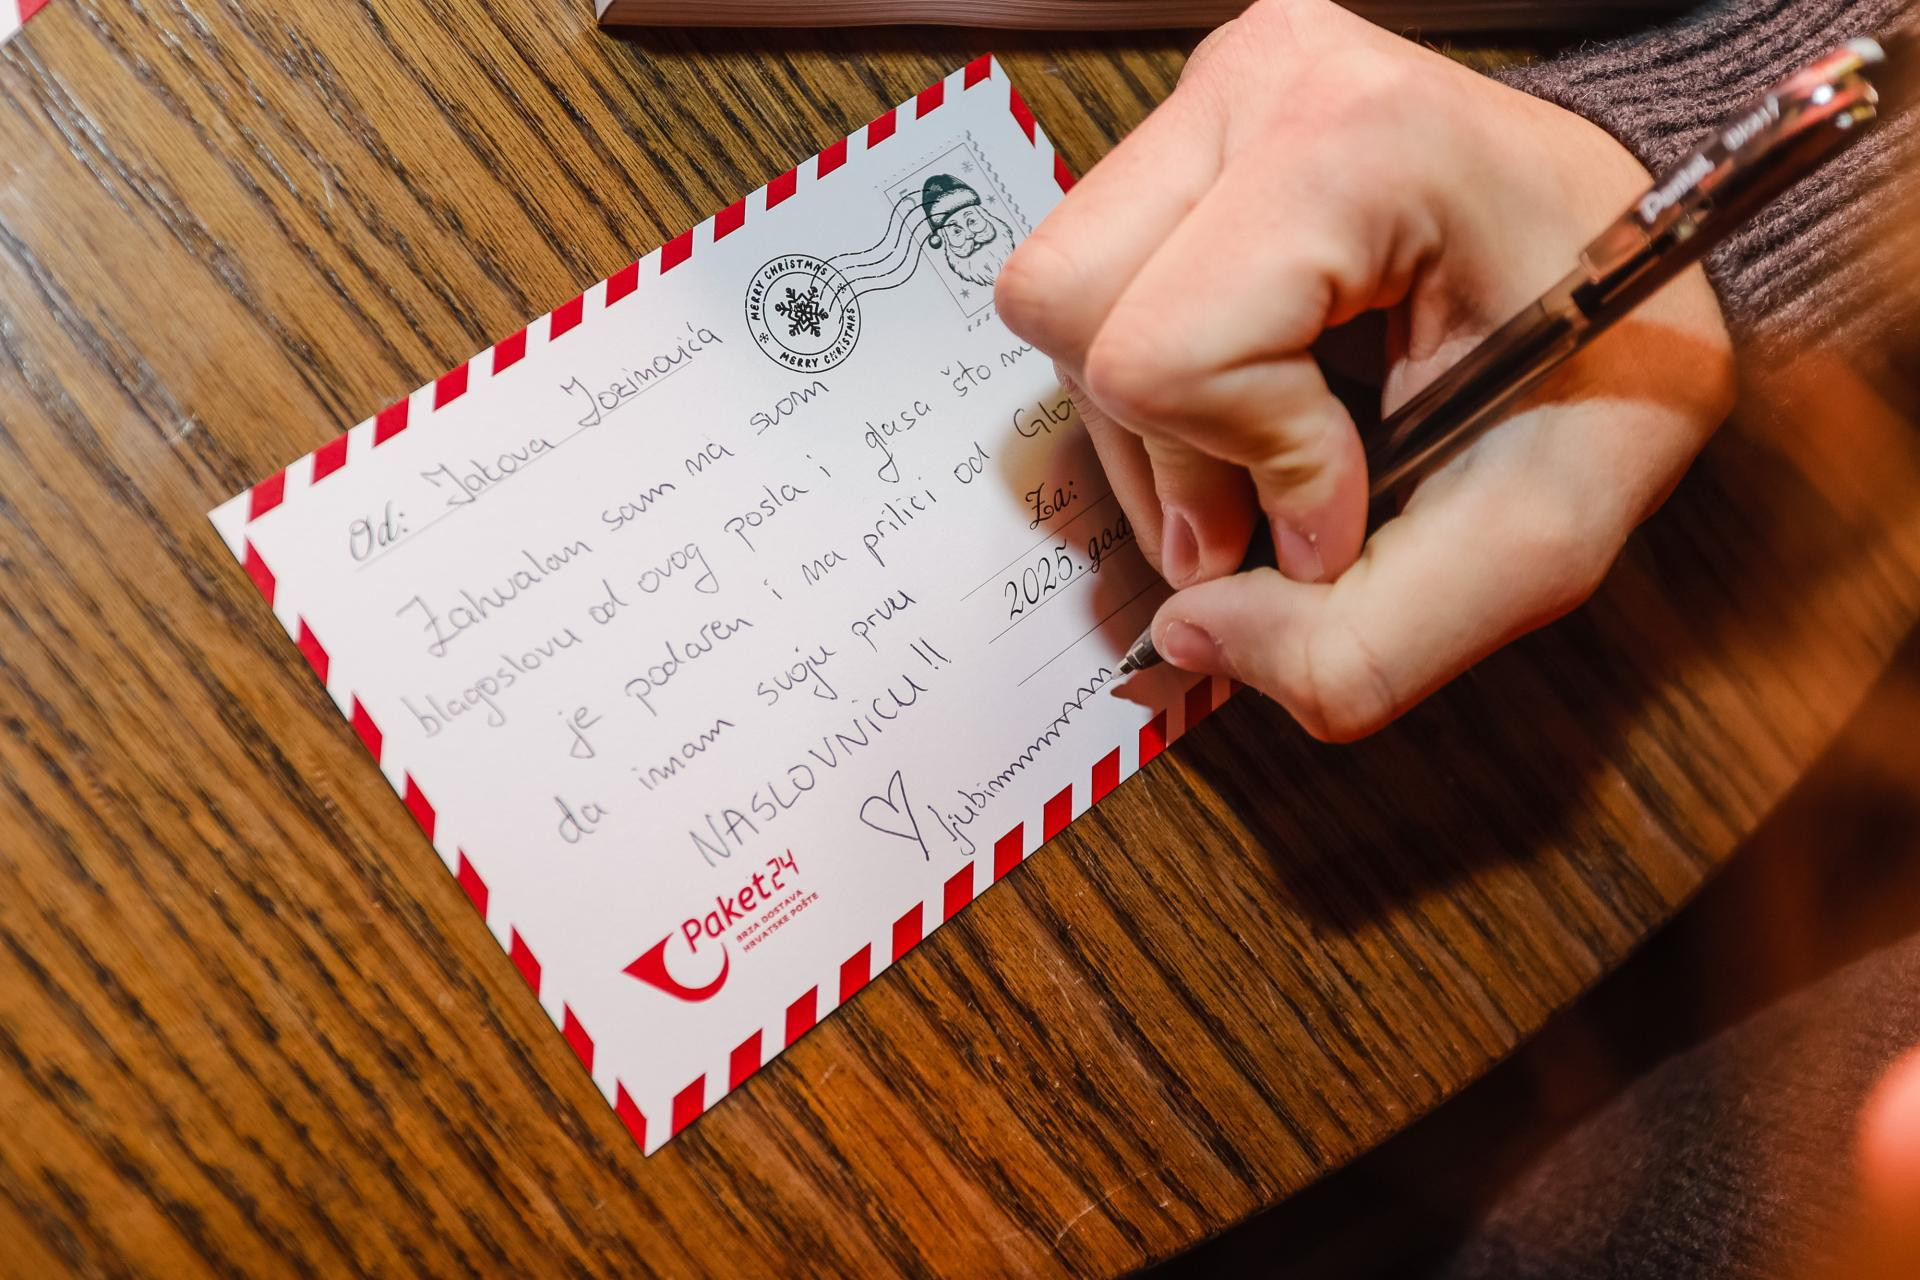 Od: Jakova Jozinovića
Zahvalan sam na svom
blagoslovu od ovog posla i glasa što
je podaren i na prilici od
da imam svoju prvu
NASLOVNICU!!
ljubimmmmmmm
Za:
2025. god
MERRY CHRISTMAS
MERRY CHRISTMAS
Paket24
BRZA DOSTAVA
HRVATSKE POŠTE
Pentel